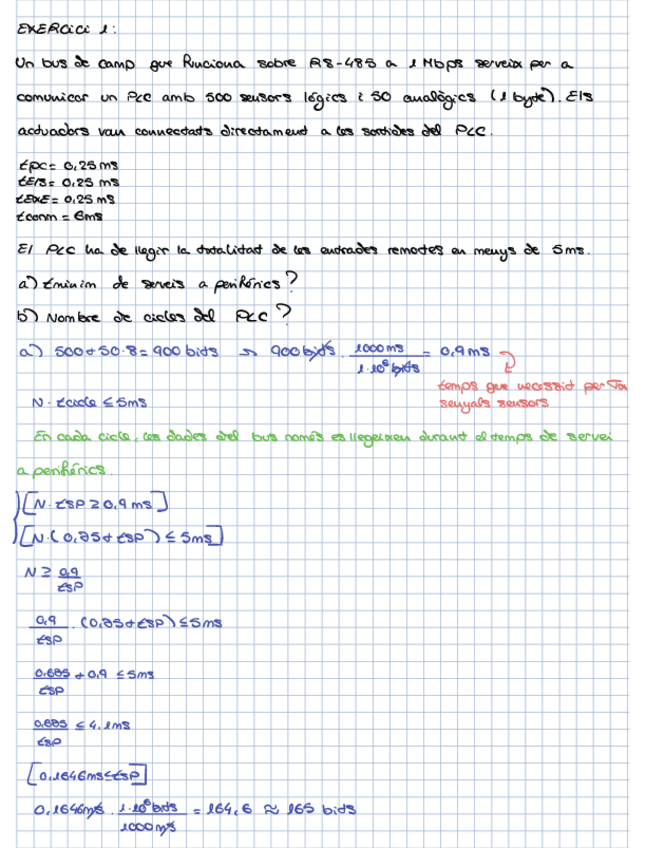 EXERCICI 1:
Un bus de camp que funciona sobre RS-485 a 1 Mbps serveix per a
comunicar un PLC amb 500 sensors lògics i 50 analògics (1 byte). Els
actuadors van connectats directament a les sortides del PLC.
tPC = 0,25 ms
tE/S = 0,25 ms
tEXE = 0,25 ms
tcomm = 6ms
El PLC ha de llegir la totalitat de les entrades remotes en menys de 5ms.
a) tmínim de serveis a perifèrics?
b) Nombre de cicles del PLC?
a) 500+50·8 = 900 bits → 900 bits · 1000 ms / 1·10⁶ bits = 0,9 ms
temps que necessit per
senyals sensors
N · tcicle ≤ 5ms
En cada cicle, les dades del bus només es llegeixen durant el temps de servei
a perifèrics.
[N · tSP ≥ 0,9 ms]
[N · (0,75 + tSP) ≤ 5ms]
N ≥ 0,9 / tSP
0,9 / tSP · (0,75 + tSP) ≤ 5ms
0,685 / tSP + 0,9 ≤ 5ms
0,685 / tSP ≤ 4,1ms
[0,1646ms ≤ tSP]
0,1646ms · 1·10⁶ bits / 1000 ms = 164,6 ≈ 165 bits